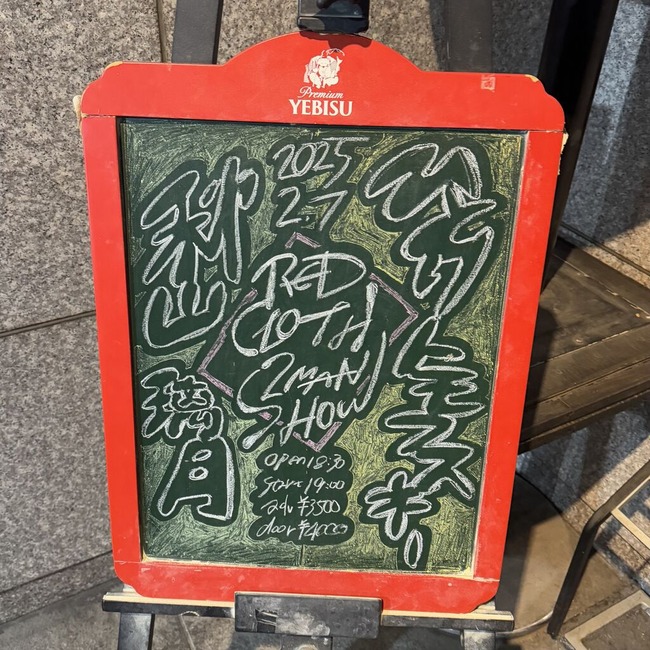 Premium
YEBISU
2025
2.7
ひとり
トモフスキー
RED
CLOTH
2MAN
SHOW
秋山
璃月
open 18:30
start 19:00
adv ¥3500
door ¥4000